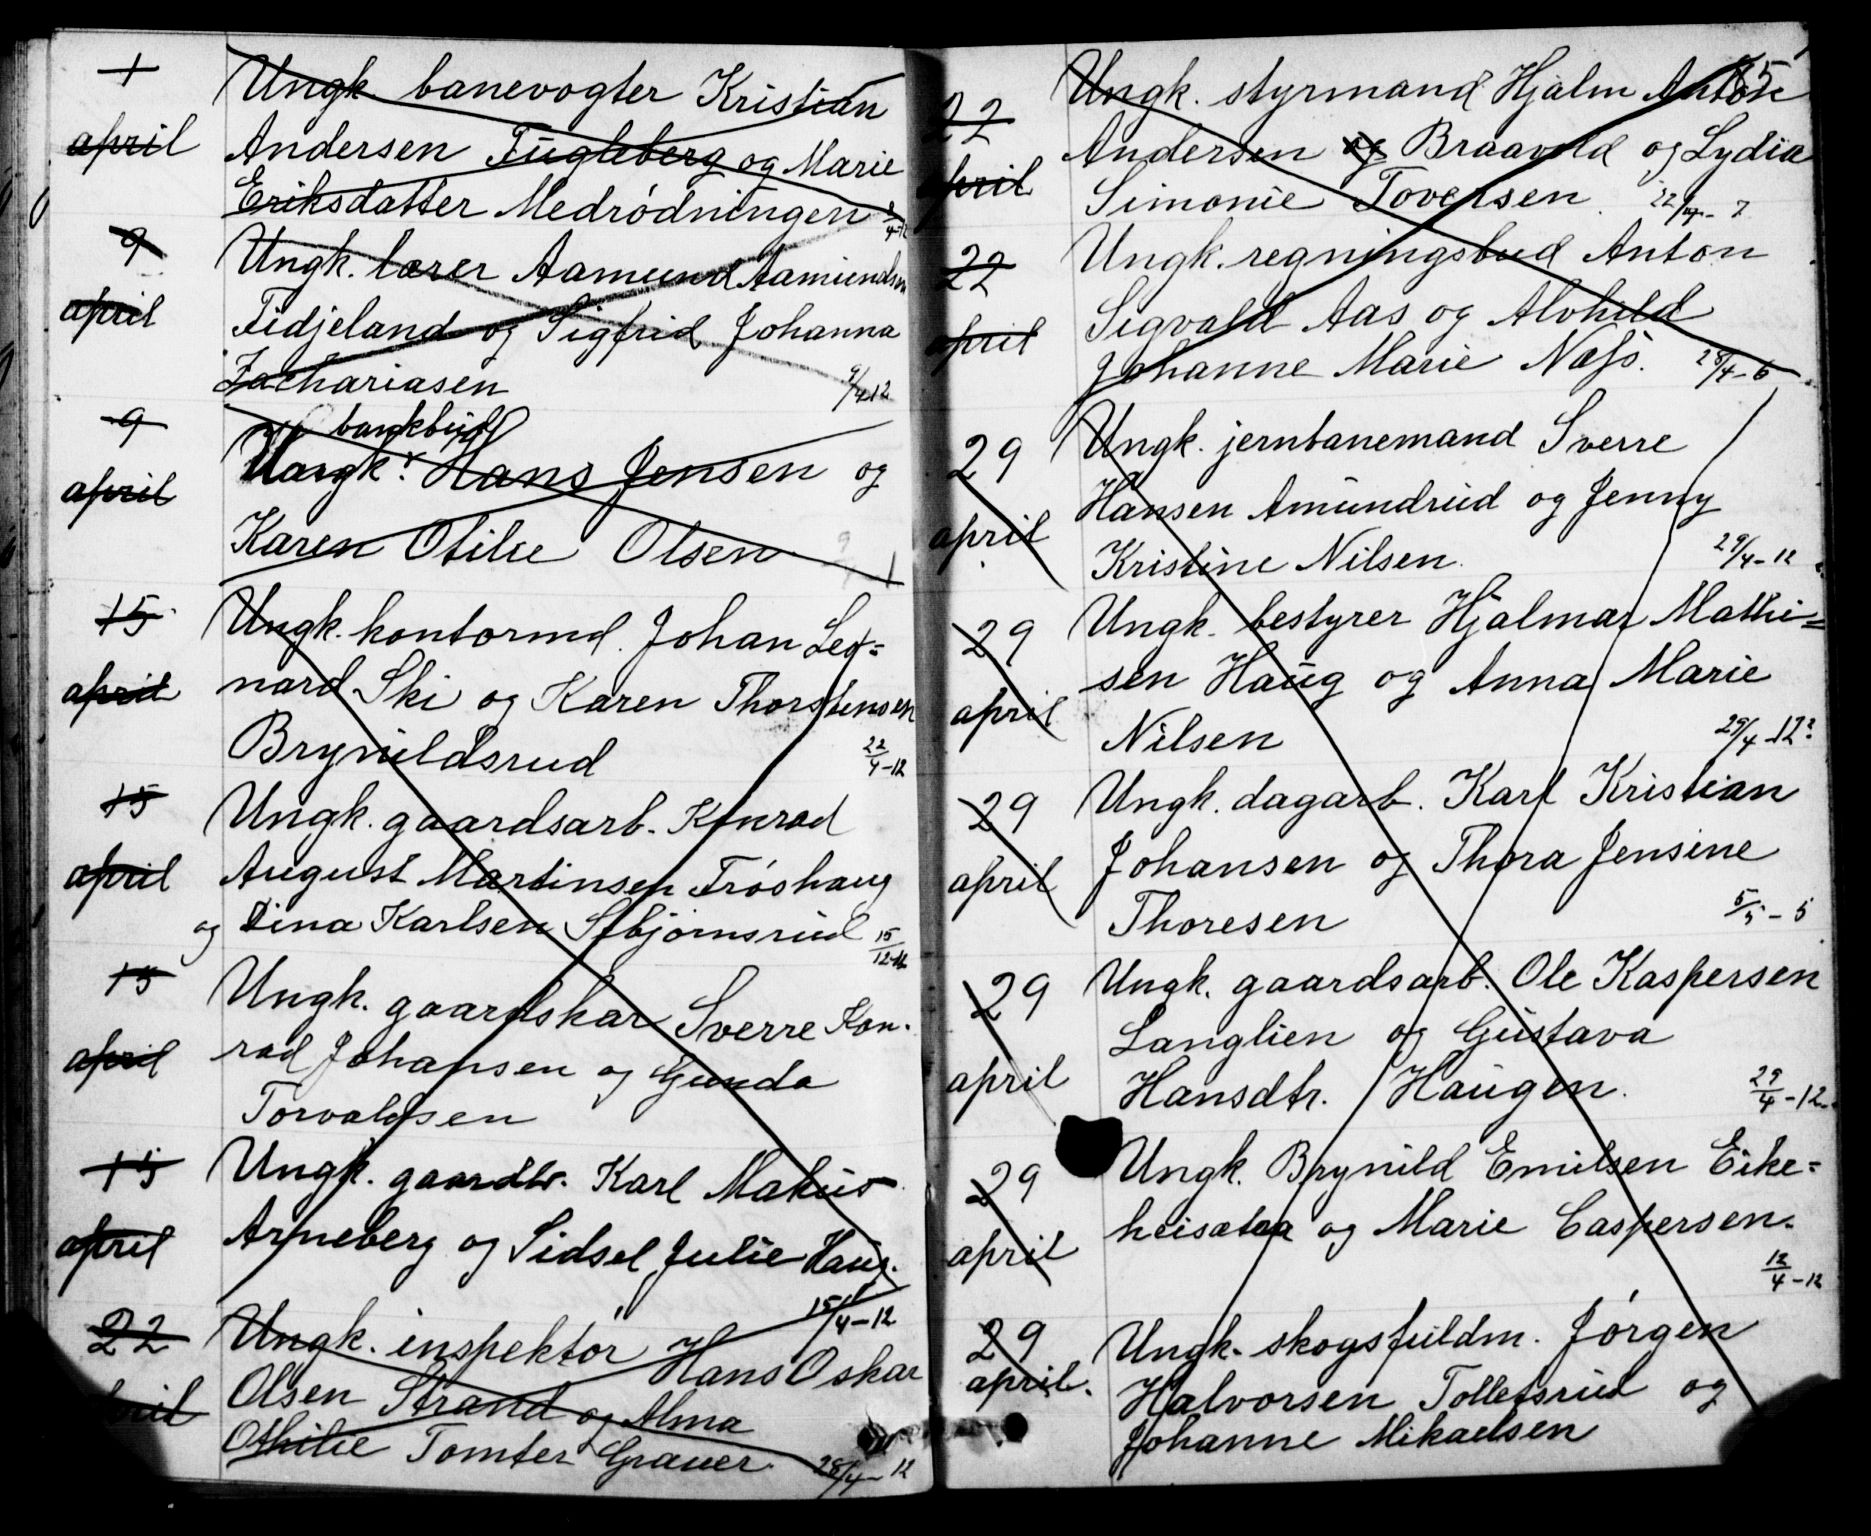 1
april
Ungk. banevogter Kristian
Andersen Fugleberg og Marie
Eriksdatter Medrødningen 4-12
9
april
Ungk. lærer Aamund Aamundsen
Fidjeland og Sigfrid Johanna
Zachariasen 9/4 12
9
april
bankbud
Ungk. Hans Jensen og
Karen Otilie Olsen
15
april
Ungk. kontormd. Johan Leo=
nard Ski og Karen Thorstensen
Brynildsrud 22/4-12
15
april
Ungk. gaardsarb. Konrad
August Martinsen Frøshaug
og Dina Karlsen Stbjørnsrud 15/12-12
15
april
Ungk. gaardskar Sverre Kon-
rad Johansen og Gunda
Torvaldsen
15
april
Ungk. gaardbr. Karl Makus
Arneberg og Sidsel Julie Haug.
15/4-12
22
april
Ungk. inspektør Hans Oskar
Olsen Strand og Alma
Othilie Tomter Grauer. 28/4-12
5
22
april
Ungk. styrmand Hjalm Anton
Andersen og Braavold og Lydia
Simonie Tovensen. 22/4-7
22
april
Ungk. regningsbud Anton
Sigvald Aas og Alvhild
Johanne Marie Næss. 28/4-6
29
april
Ungk. jernbanemand Sverre
Hansen Amundrud og Jenny
Kristine Nilsen. 29/4-12
29
april
Ungk. bestyrer Hjalmar Mathi=
sen Haug og Anna Marie
Nilsen 29/4-12?
29
april
Ungk. dagarb. Karl Kristian
Johansen og Thora Jensine
Thoresen 5/5-5
29
april
Ungk. gaardsarb. Ole Kaspersen
Langlien og Gustava
Hansdtr. Haugen. 29/4-12
29
april
Ungk. Brynild Emilsen Eike=
heisataa og Marie Caspersen.
12/4-12
29
april.
Ungk. skogsfuldm. Jørgen
Halvorsen Tollefsrud og
Johanne Mikaelsen